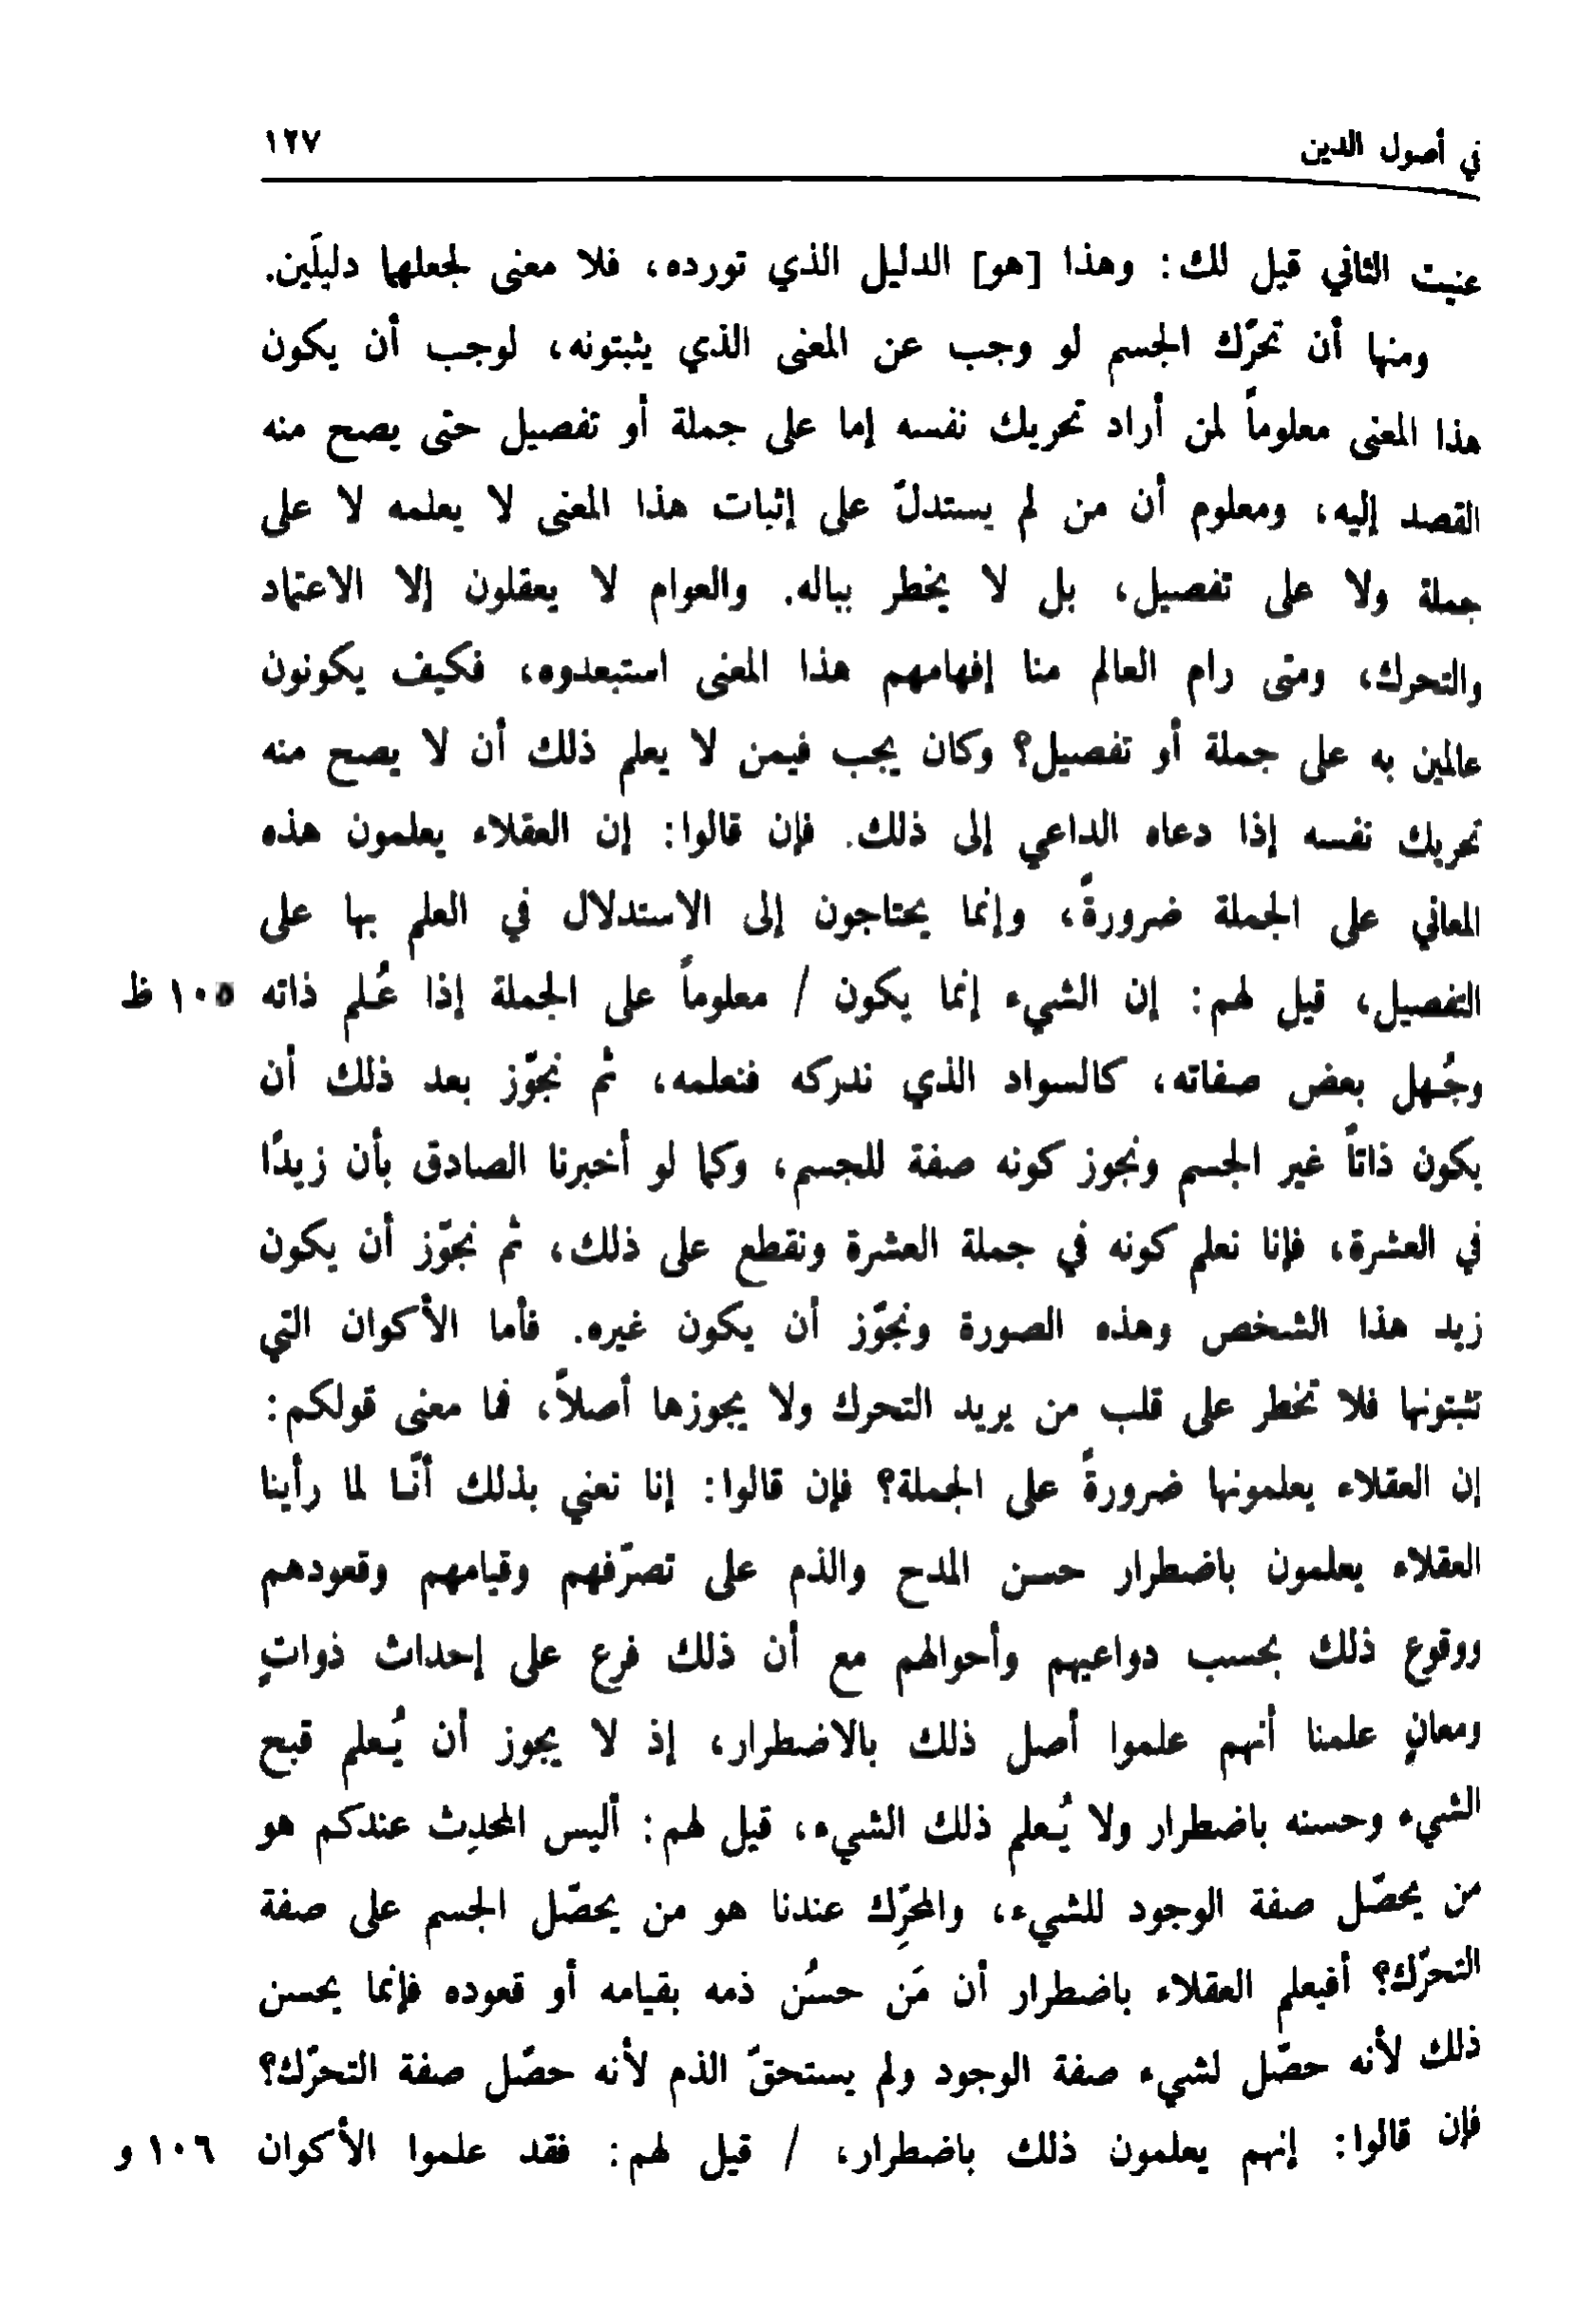 في أصول الدين ١٢٧
عنيت الثاني قيل لك: وهذا [هو] الدليل الذي تورده، فلا معنى لجعلهما دليلَين.
ومنها أن تحرّك الجسم لو وجب عن المعنى الذي يثبتونه، لوجب أن يكون
هذا المعنى معلوماً لمن أراد تحريك نفسه إما على جملة أو تفصيل حتى يصح منه
القصد إليه، ومعلوم أن من لم يستدلّ على إثبات هذا المعنى لا يعلمه لا على
جملة ولا على تفصيل، بل لا يخطر بباله. والعوام لا يعقلون إلا الاعتماد
والتحرك، ومتى رام العالم منا إفهامهم هذا المعنى استبعدوه، فكيف يكونون
عالمين به على جملة أو تفصيل؟ وكان يجب فيمن لا يعلم ذلك أن لا يصح منه
تحريك نفسه إذا دعاه الداعي إلى ذلك. فإن قالوا: إن العقلاء يعلمون هذه
المعاني على الجملة ضرورةً، وإنما يحتاجون إلى الاستدلال في العلم بها على
التفصيل، قيل لهم: إن الشيء إنما يكون / معلوماً على الجملة إذا عُلم ذاته ١٠٥ ظ
وجُهل بعض صفاته، كالسواد الذي ندركه فنعلمه، ثم نجوّز بعد ذلك أن
يكون ذاتاً غير الجسم ونجوز كونه صفة للجسم، وكما لو أخبرنا الصادق بأن زيدًا
في العشرة، فإنا نعلم كونه في جملة العشرة ونقطع على ذلك، ثم نجوّز أن يكون
زيد هذا الشخص وهذه الصورة ونجوّز أن يكون غيره. فأما الأكوان التي
تثبتونها فلا تخطر على قلب من يريد التحرك ولا يجوزها أصلاً، فما معنى قولكم:
إن العقلاء يعلمونها ضرورةً على الجملة؟ فإن قالوا: إنا نعني بذلك أنّا لما رأينا
العقلاء يعلمون باضطرار حسن المدح والذم على تصرّفهم وقيامهم وقعودهم
ووقوع ذلك بحسب دواعيهم وأحوالهم مع أن ذلك فرع على إحداث ذواتٍ
ومعانٍ علمنا أنهم علموا أصل ذلك بالاضطرار، إذ لا يجوز أن يُعلم قبح
الشيء وحسنه باضطرار ولا يُعلم ذلك الشيء، قيل لهم: أليس المحدِث عندكم هو
من يحصّل صفة الوجود للشيء، والمحرِّك عندنا هو من يحصّل الجسم على صفة
التحرّك؟ أفيعلم العقلاء باضطرار أن مَن حسُن ذمه بقيامه أو قعوده فإنما يحسن
ذلك لأنه حصّل لشيء صفة الوجود ولم يستحقّ الذم لأنه حصّل صفة التحرّك؟
فإن قالوا: إنهم يعلمون ذلك باضطرار، / قيل لهم: فقد علموا الأكوان ١٠٦ و